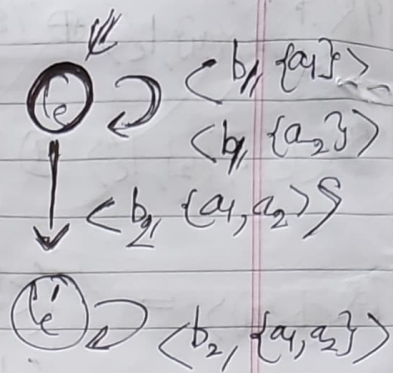 <b₁, {a₁}>
le
<b₁, {a₂}>
<b₂, {a₁, a₂>}
l'e
<b₂, {a₁, a₂}>